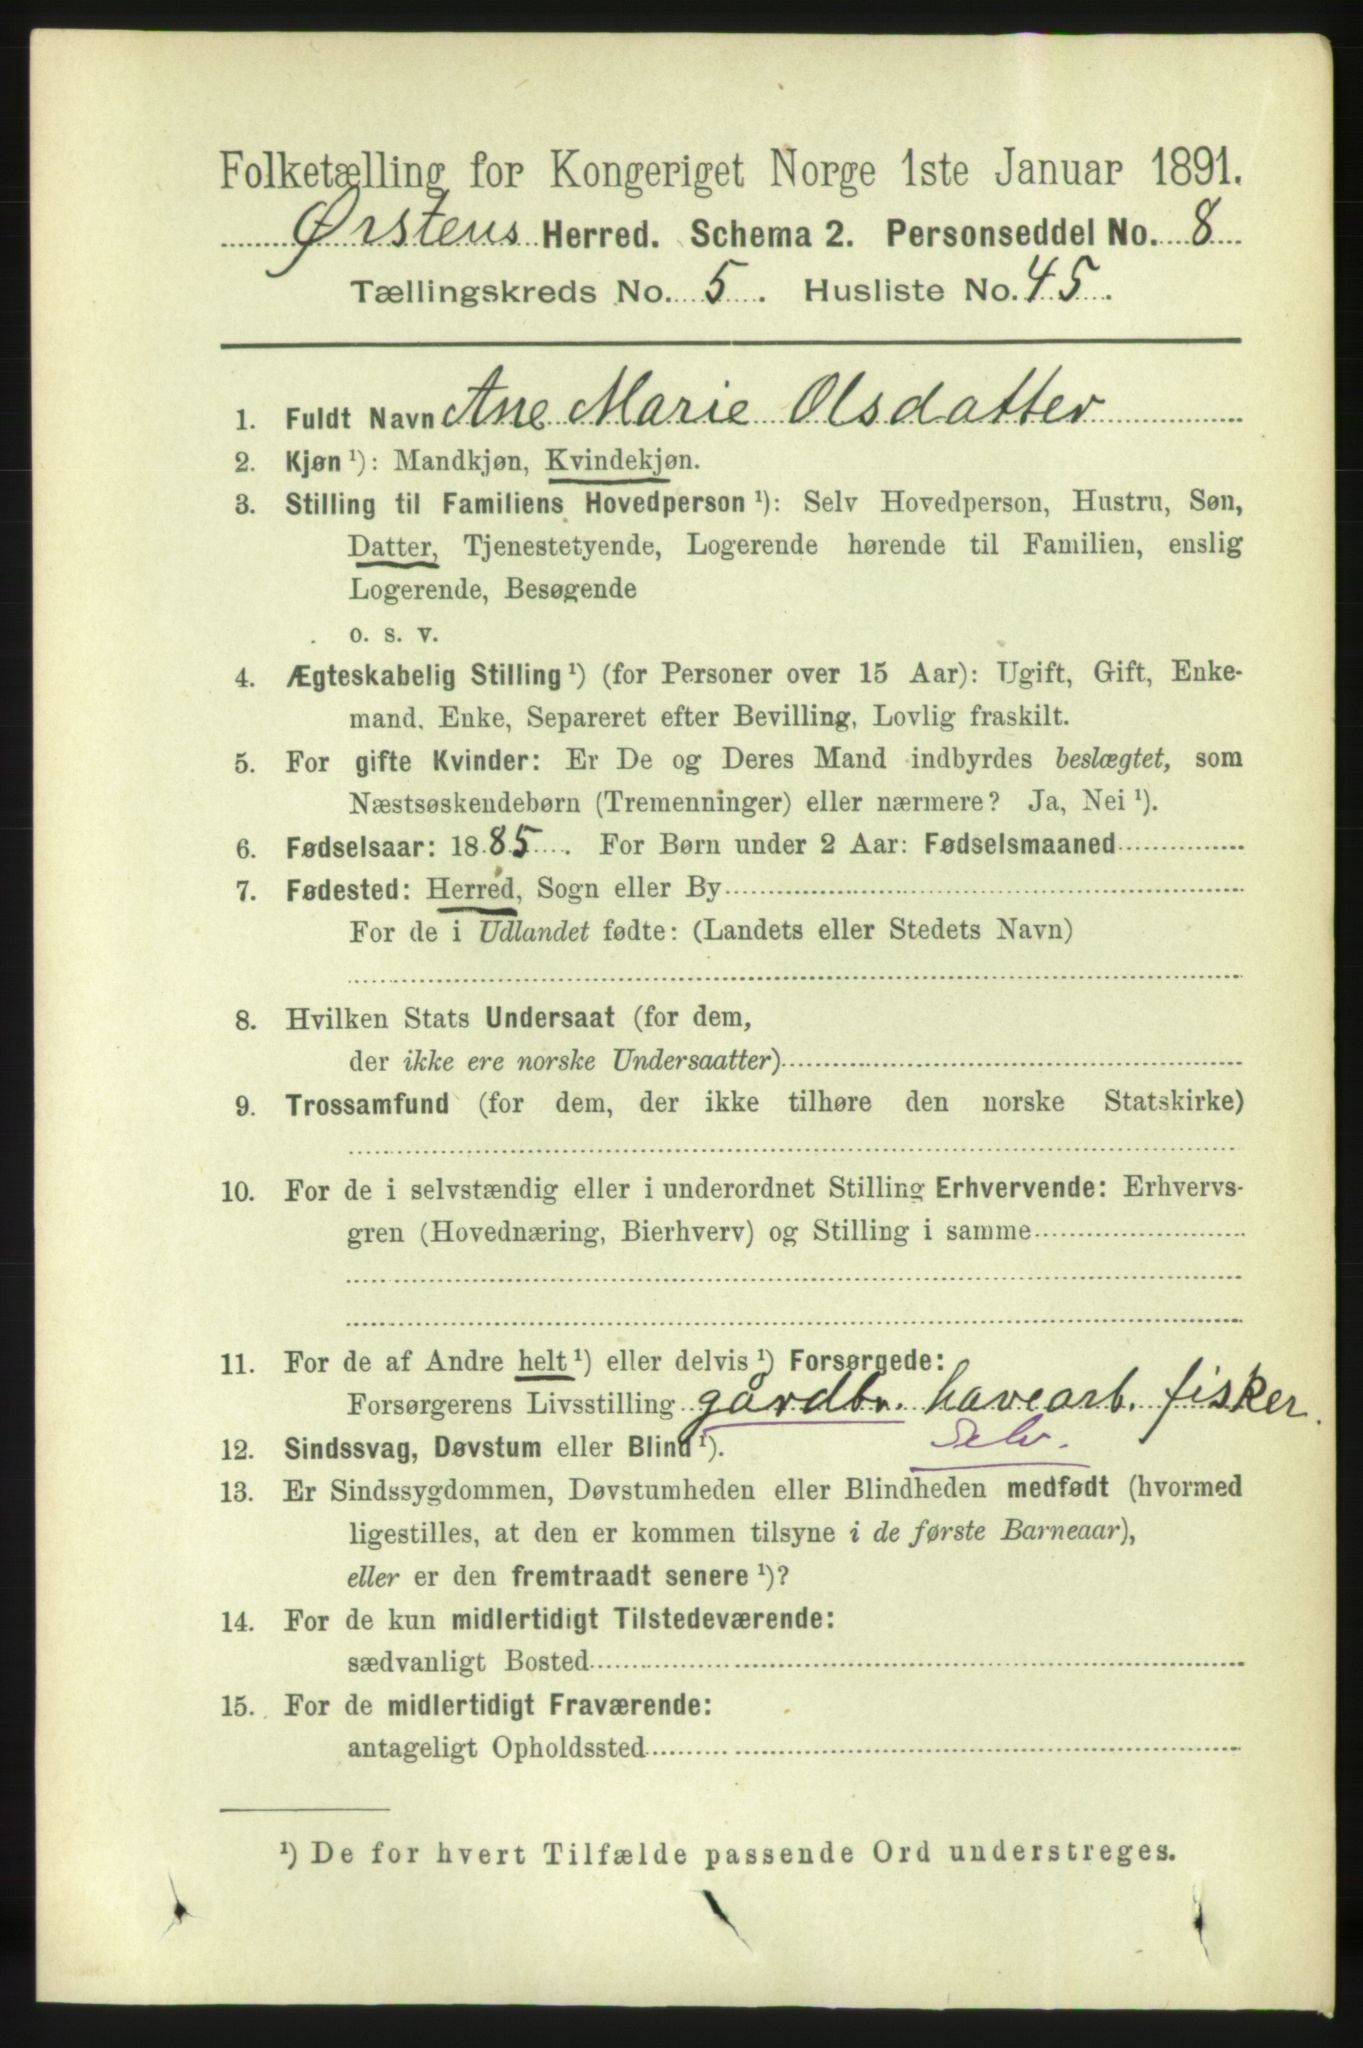 Folketælling for Kongeriget Norge 1ste Januar 1891.
Ørstens Herred. Schema 2. Personseddel No. 8
Tællingskreds No. 5. Husliste No. 45.
1. Fuldt Navn Ane Marie Olsdatter
2. Kjøn ¹): Mandkjøn, Kvindekjøn.
3. Stilling til Familiens Hovedperson ¹): Selv Hovedperson, Hustru, Søn,
Datter, Tjenestetyende, Logerende hørende til Familien, enslig
Logerende, Besøgende
o. s. v.
4. Ægteskabelig Stilling ¹) (for Personer over 15 Aar): Ugift, Gift, Enke-
mand, Enke, Separeret efter Bevilling, Lovlig fraskilt.
5. For gifte Kvinder: Er De og Deres Mand indbyrdes beslægtet, som
Næstsøskendebørn (Tremenninger) eller nærmere? Ja, Nei ¹).
6. Fødselsaar: 1885. For Børn under 2 Aar: Fødselsmaaned
7. Fødested: Herred, Sogn eller By
For de i Udlandet fødte: (Landets eller Stedets Navn)
8. Hvilken Stats Undersaat (for dem,
der ikke ere norske Undersaatter)
9. Trossamfund (for dem, der ikke tilhøre den norske Statskirke)
10. For de i selvstændig eller i underordnet Stilling Erhvervende: Erhvervs-
gren (Hovednæring, Bierhverv) og Stilling i samme
11. For de af Andre helt ¹) eller delvis ¹) Forsørgede:
Forsørgerens Livsstilling gårdbr. havearb. fisker.
12. Sindssvag, Døvstum eller Blind ¹). Selv.
13. Er Sindssygdommen, Døvstumheden eller Blindheden medfødt (hvormed
ligestilles, at den er kommen tilsyne i de første Barneaar),
eller er den fremtraadt senere ¹)?
14. For de kun midlertidigt Tilstedeværende:
sædvanligt Bosted
15. For de midlertidigt Fraværende:
antageligt Opholdssted
¹) De for hvert Tilfælde passende Ord understreges.